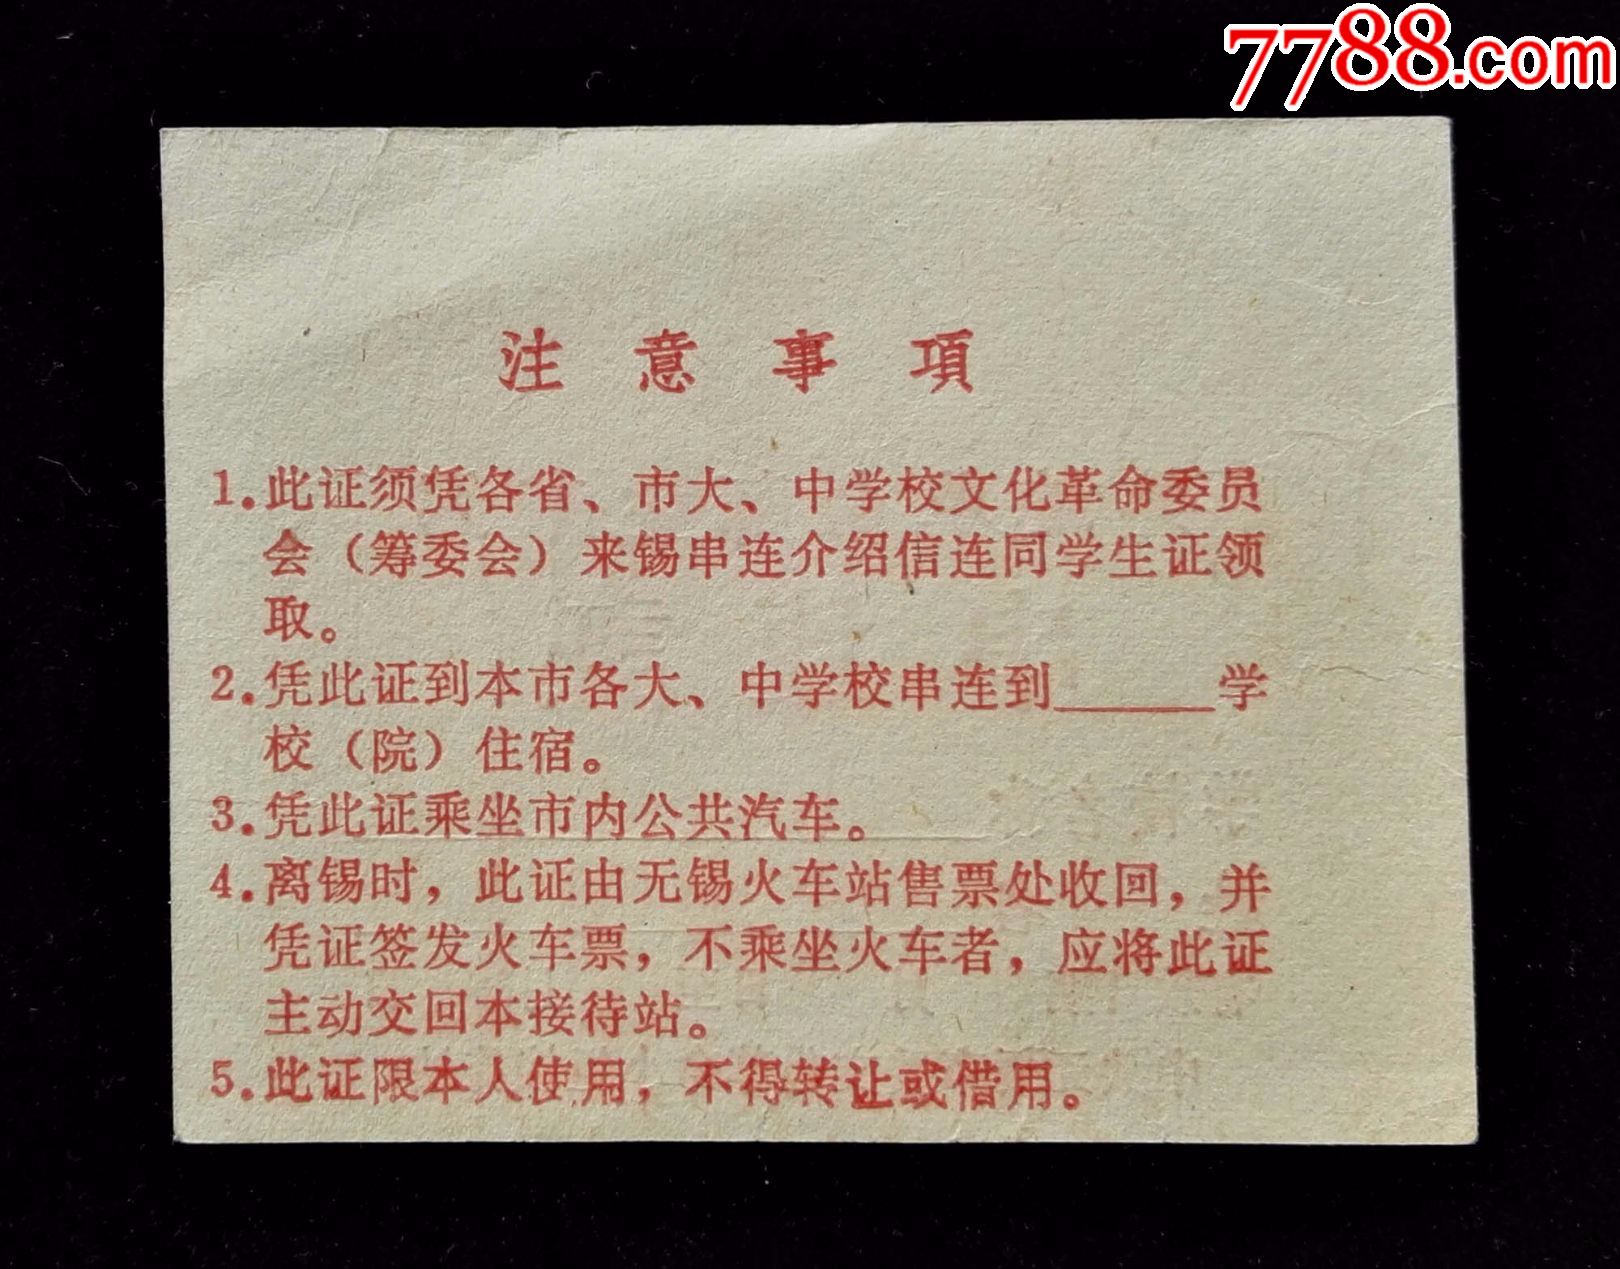 7788.com
注意事項
1.此证须凭各省、市大、中学校文化革命委员
会（筹委会）来锡串连介绍信连同学生证领
取。
2.凭此证到本市各大、中学校串连到______学
校（院）住宿。
3.凭此证乘坐市内公共汽车。
4.离锡时，此证由无锡火车站售票处收回，并
凭证签发火车票，不乘坐火车者，应将此证
主动交回本接待站。
5.此证限本人使用，不得转让或借用。